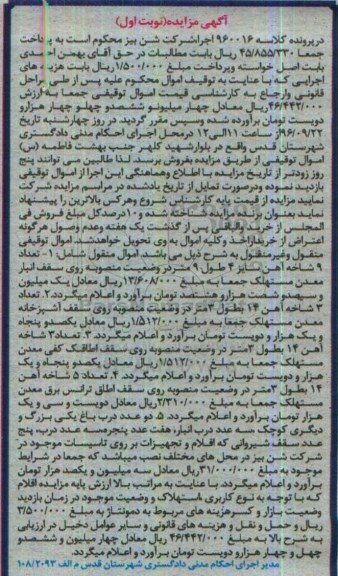 آگهی مزایده(نوبت اول)
درپرونده کلاسه ۹۶۰۰۱۶ اجراشرکت شن بیز محکوم است به پرداخت
جمعا ۴۵/۸۵۵/۳۳۰ ریال بابت مطالبات در حق آقای بهمن احمدی
بابت اصل خواسته وپرداخت مبلغ ۱/۵۰۰/۰۰۰ ریال بابت هزینه های
اجرایی که با عنایت به توقیف اموال محکوم علیه پس از طی مراحل
قانونی وارجاع به کارشناسی قیمت اموال توقیفی جمعا به ارزش
۴۶/۴۴۲/۰۰۰ ریال معادل چهار میلیونو ششصدو چهلو چهار هزارو
دویست تومان برآورده شده وسپس مقرر گردید، در روز چهارشنبه تاریخ
۹۶/۰۹/۲۲ از ساعت ۱۱الی۱۲ درمحل اجرای احکام مدنی دادگستری
شهرستان قدس واقع در بلوارشهید کلهر جنب بهشت فاطمه (س)
اموال توقیفی از طریق مزایده بفروش برسد. لذا طالبین می توانند پنج
روز زودتر از تاریخ مزایده با اطلاع وهماهنگی این اجرا از اموال توقیفی
بازدید نموده ودرصورت تمایل از تاریخ یادشده در مراسم مزایده شرکت
نمایید مزایده از قیمت پایه کارشناس شروع وهرکس بالاترین را پیشنهاد
نماید بعنوان برنده مزایده شناخته شده و۱۰درصدکل مبلغ فروش فی
المجلس از خریدار وباقی پس از گذشت یک هفته وعدم وصول هرگونه
اعتراض از خریداراخذ وکلیه اموال به وی تحویل خواهدشد. اموال توقیفی
منقول وغیرمنقول به شرح ذیل می باشد: اموال منقول شامل: ۱- تعداد
۹ شاخه آهن سایز ۴ طول ۹ متردر وضعیت منصوبه روی سقف انبار
معدن مستهلک جمعا به مبلغ ۱۳/۶۰۸/۰۰۰ریال معادل یک میلیون
و سیصدو شصت هزارو هشتصد تومان برآورد و اعلام میگردد.۲. تعداد
۳ شاخه آهن ۱۴ بطول ۳متر در وضعیت منصوبه روی سقف آشپزخانه
معدن مستهلک جمعا به مبلغ ۱/۵۱۲/۰۰۰ریال معادل یکصدو پنجاه
و یک هزار و دویست تومان برآورد و اعلام میگردد. ۳. تعداد۳ شاخه
آهن ۱۲ بطول ۳متر در وضعیت منصوبه روی سقف اطاقک کفی معدن
مستهلک جمعا به مبلغ ۱/۵۱۲/۰۰۰ریال معادل یکصدو پنجاه و یک
هزار و دویست تومان برآورد و اعلام میگردد. ۴. تعداد ۵ شاخه آهن
۱۴ بطول ۳متر در وضعیت منصوبه روی سقف اطاق ترانس برق معدن
مستهلک جمعا به مبلغ ۲/۳۱۰/۰۰۰ریال معادل دویست و سی و یک
هزار تومان برآورد و اعلام میگردد. ۵. دو عدد درب باغ یکی بزرگ و
دیگری کوچک سه عدد درب انبار، هفت عدد پنجره، سه عدد درب، پنج
عدد سقف شیروانی که اقلام و تجهیزات بر روی تاسیسات موجود در
شرکت شن بیز در محل های مختلف نصب میباشد که جمعا در شرایط
موجود به مبلغ ۳۱/۰۰۰/۰۰۰ریال معادل سه میلیون و یکصد هزار تومان
برآورد و اعلام میگردد. با عنایت به مراتب بالا ارزش پایه مزایده اقلام
که با توجه به نوع کاربری ،استهلاک و وضعیت موجود در زمان بازدید
وضعیت بازار و کسرهزینه های مربوط به دمونتاژ به مبلغ ۳/۵۰۰/۰۰۰
ریال و حمل و نقل و هزینه های قانونی و سایر عوامل دخیل در ارزیابی
به شرح بالا به مبلغ ۴۶/۴۴۲/۰۰۰ ریال معادل چهار میلیون و ششصدو
چهل و چهار هزارو دویست تومان برآورد و اعلام میگردد.
مدیر اجرای احکام مدنی دادگستری شهرستان قدس م الف ۱۰۸/۲۰۹۳